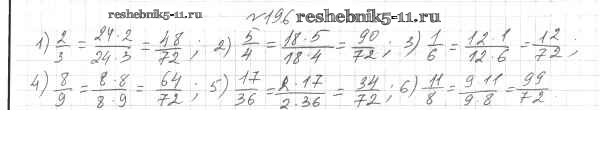 reshebnik5-11.ru №196 reshebnik5-11.ru
1) 2/3 = 24·2/24·3 = 48/72; 2) 5/4 = 18·5/18·4 = 90/72; 3) 1/6 = 12·1/12·6 = 12/72;
4) 8/9 = 8·8/8·9 = 64/72; 5) 17/36 = 2·17/2·36 = 34/72; 6) 11/8 = 9·11/9·8 = 99/72.